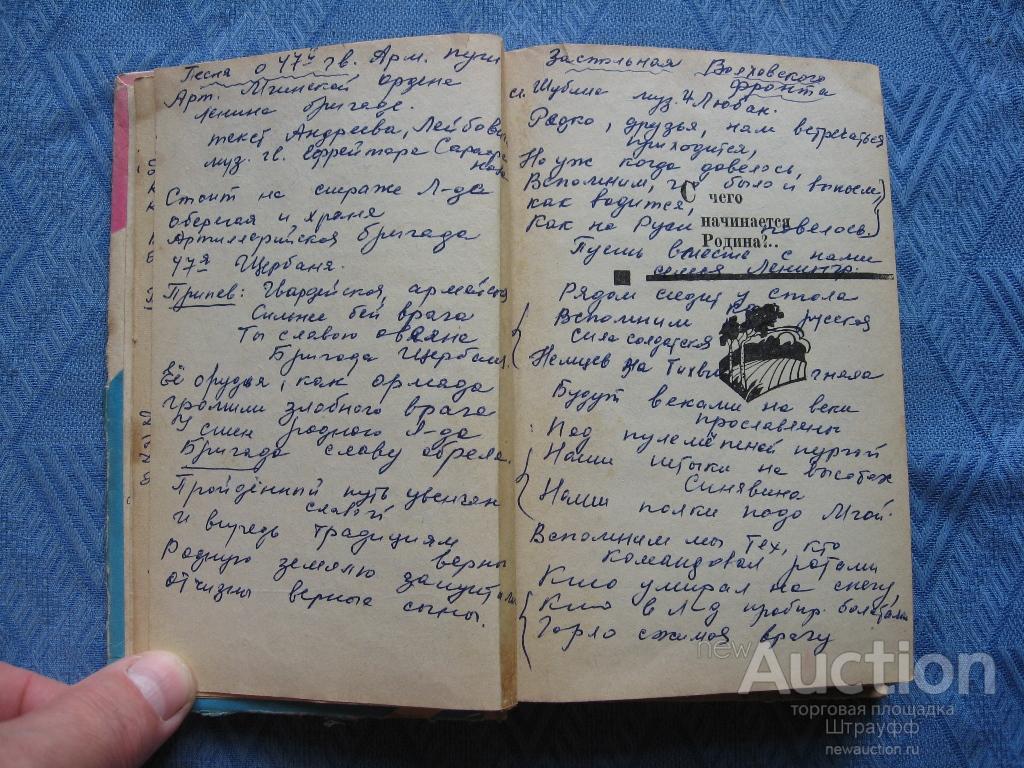 Песня о 47й гв. Арм. пуш
Арт. Мгинской ордена
Ленина бригаде.
текст Андреева, Лейбова,
муз. гв. ефрейтора
Стоит на страже Л-да
оберегая и храня
Артиллерийская бригада
47я Щербаня.
Припев: Гвардейская, армейская
Сильнее бей врага
Ты славою овеяна
Бригада Щербаня.
Её орудья, как армада
громили злобного врага
У стен родного Л-да
Бригада славу обрела.
Пройдённый путь увенчан
славой
и впредь традициям
верны
Родную землю защитили
отчизны верные сыны.
Застольная Волховского
фронта
сл. Шубина муз. И Любан.
Редко, друзья, нам встречаться
приходится,
Но уж когда довелось,
Вспомним, было и выпьем
как водится,
Как на Руси повелось.
С чего
начинается
Родина?..
Пусть вместе с нами
семья Ленингр.
Рядом сидит у стола
Вспомним русская
сила солдатская
Немцев за Тихвин гнала
Будут веками на веки
прославлены
Под пулеметной пургой
Наши штыки на высотах
Синявина
Наши полки подо Мгой.
Вспомним мы тех, кто
командовал ротами
Кто умирал на снегу,
Кто в Л-д пробир. болотами
Горло сжимая врагу
newAuction
торговая площадка
Штрауфф
newauction.ru